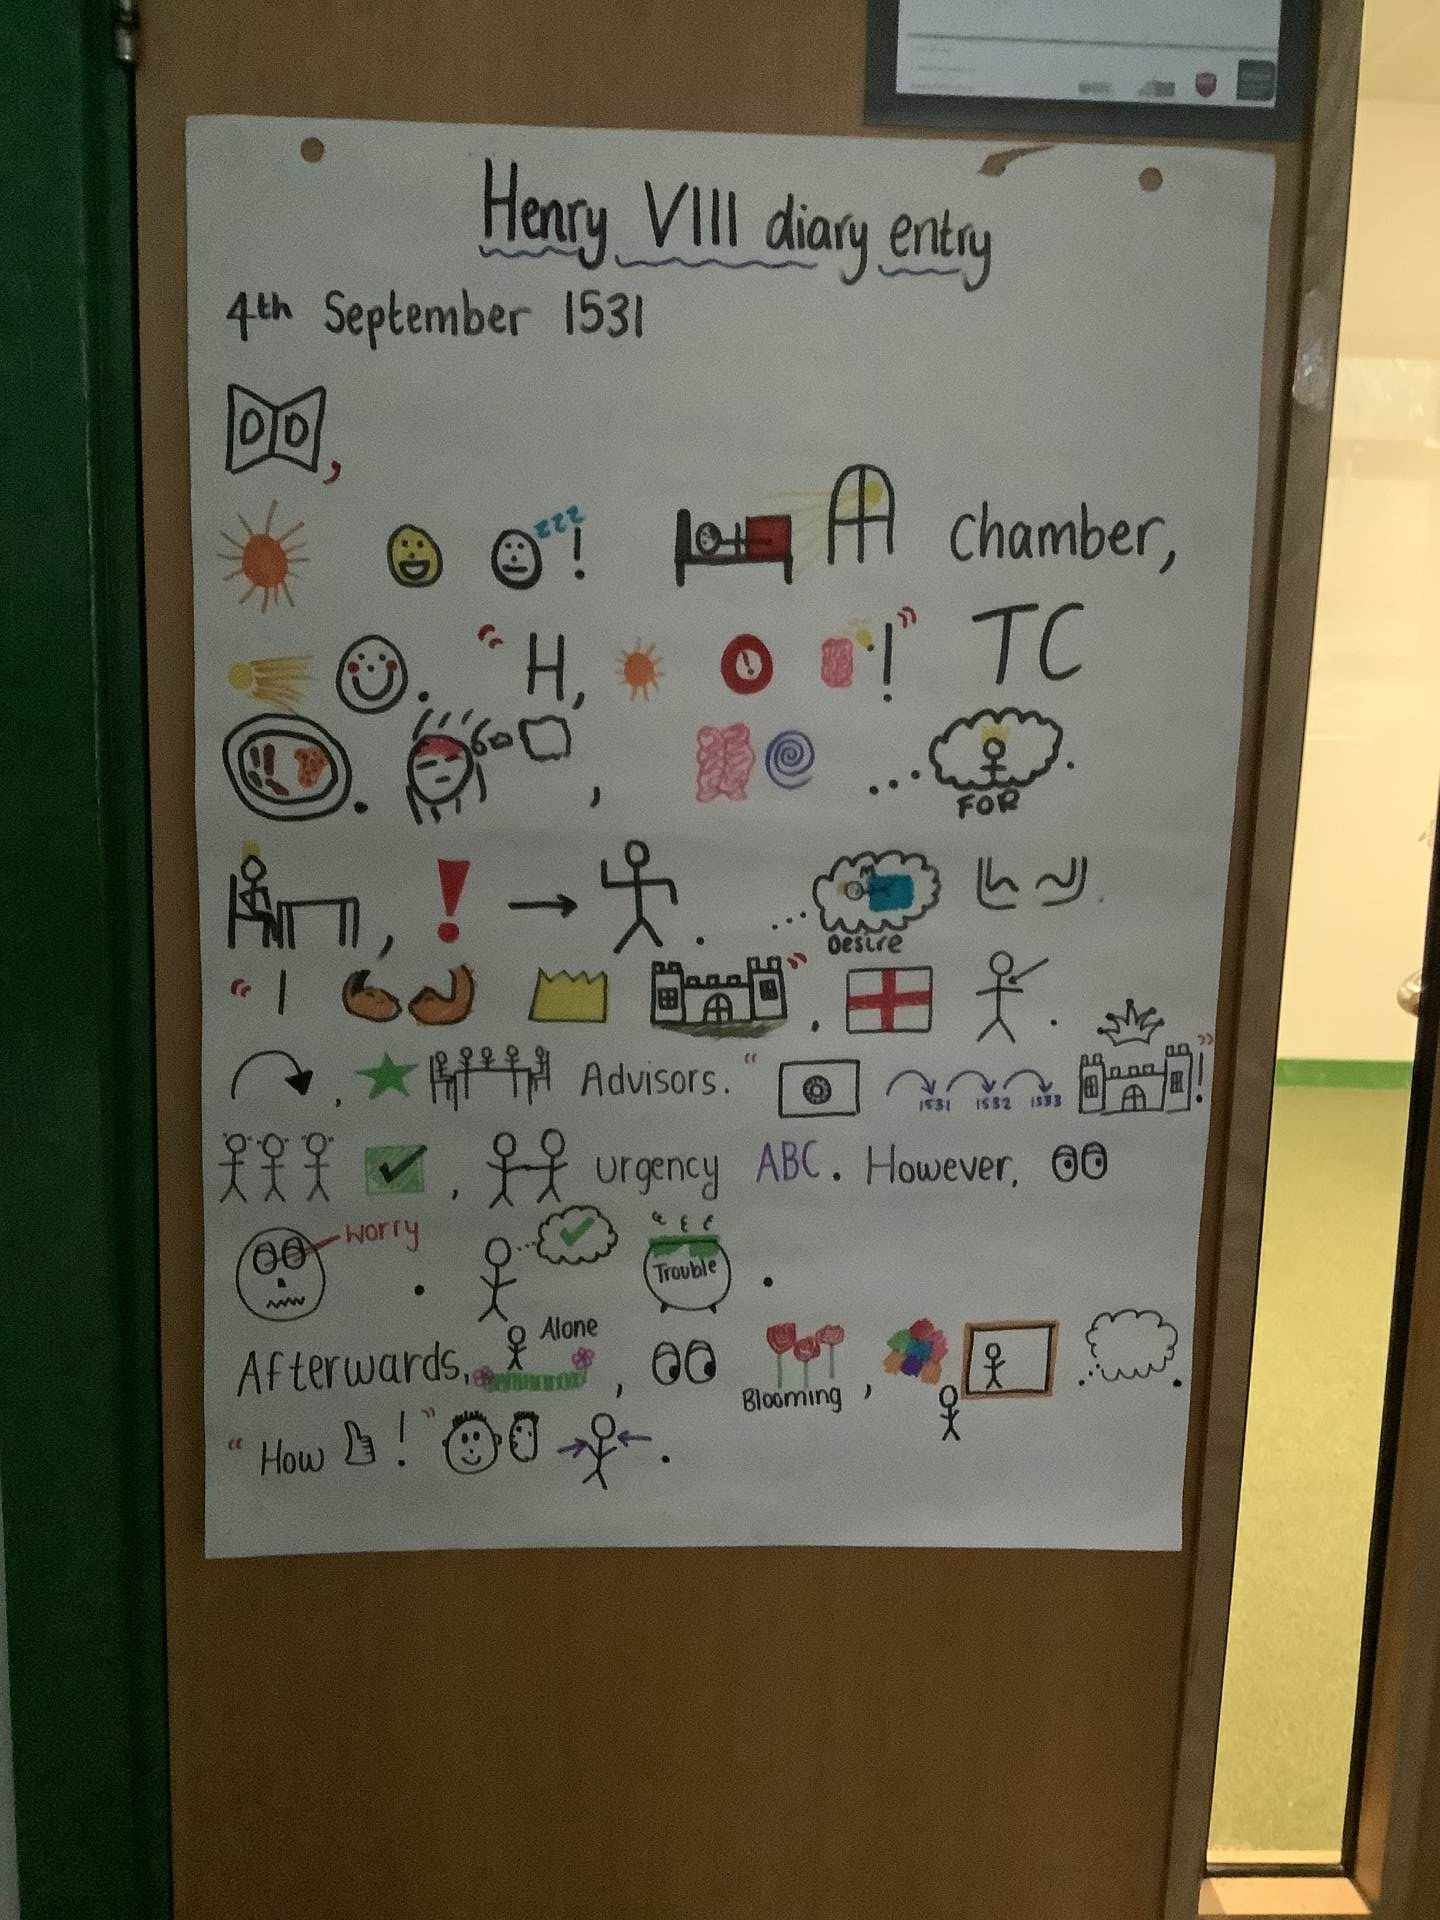 Henry VIII diary entry
4th September 1531
DD,
zzz! chamber,
. "H, !" TC
. , ... .
FOR
, ! . ... M .
Desire
"I ". .
. Advisors. " 1531 1532 1533 "!
, urgency ABC. However,
worry . Trouble .
Afterwards, Alone , Blooming , .
"How !" .